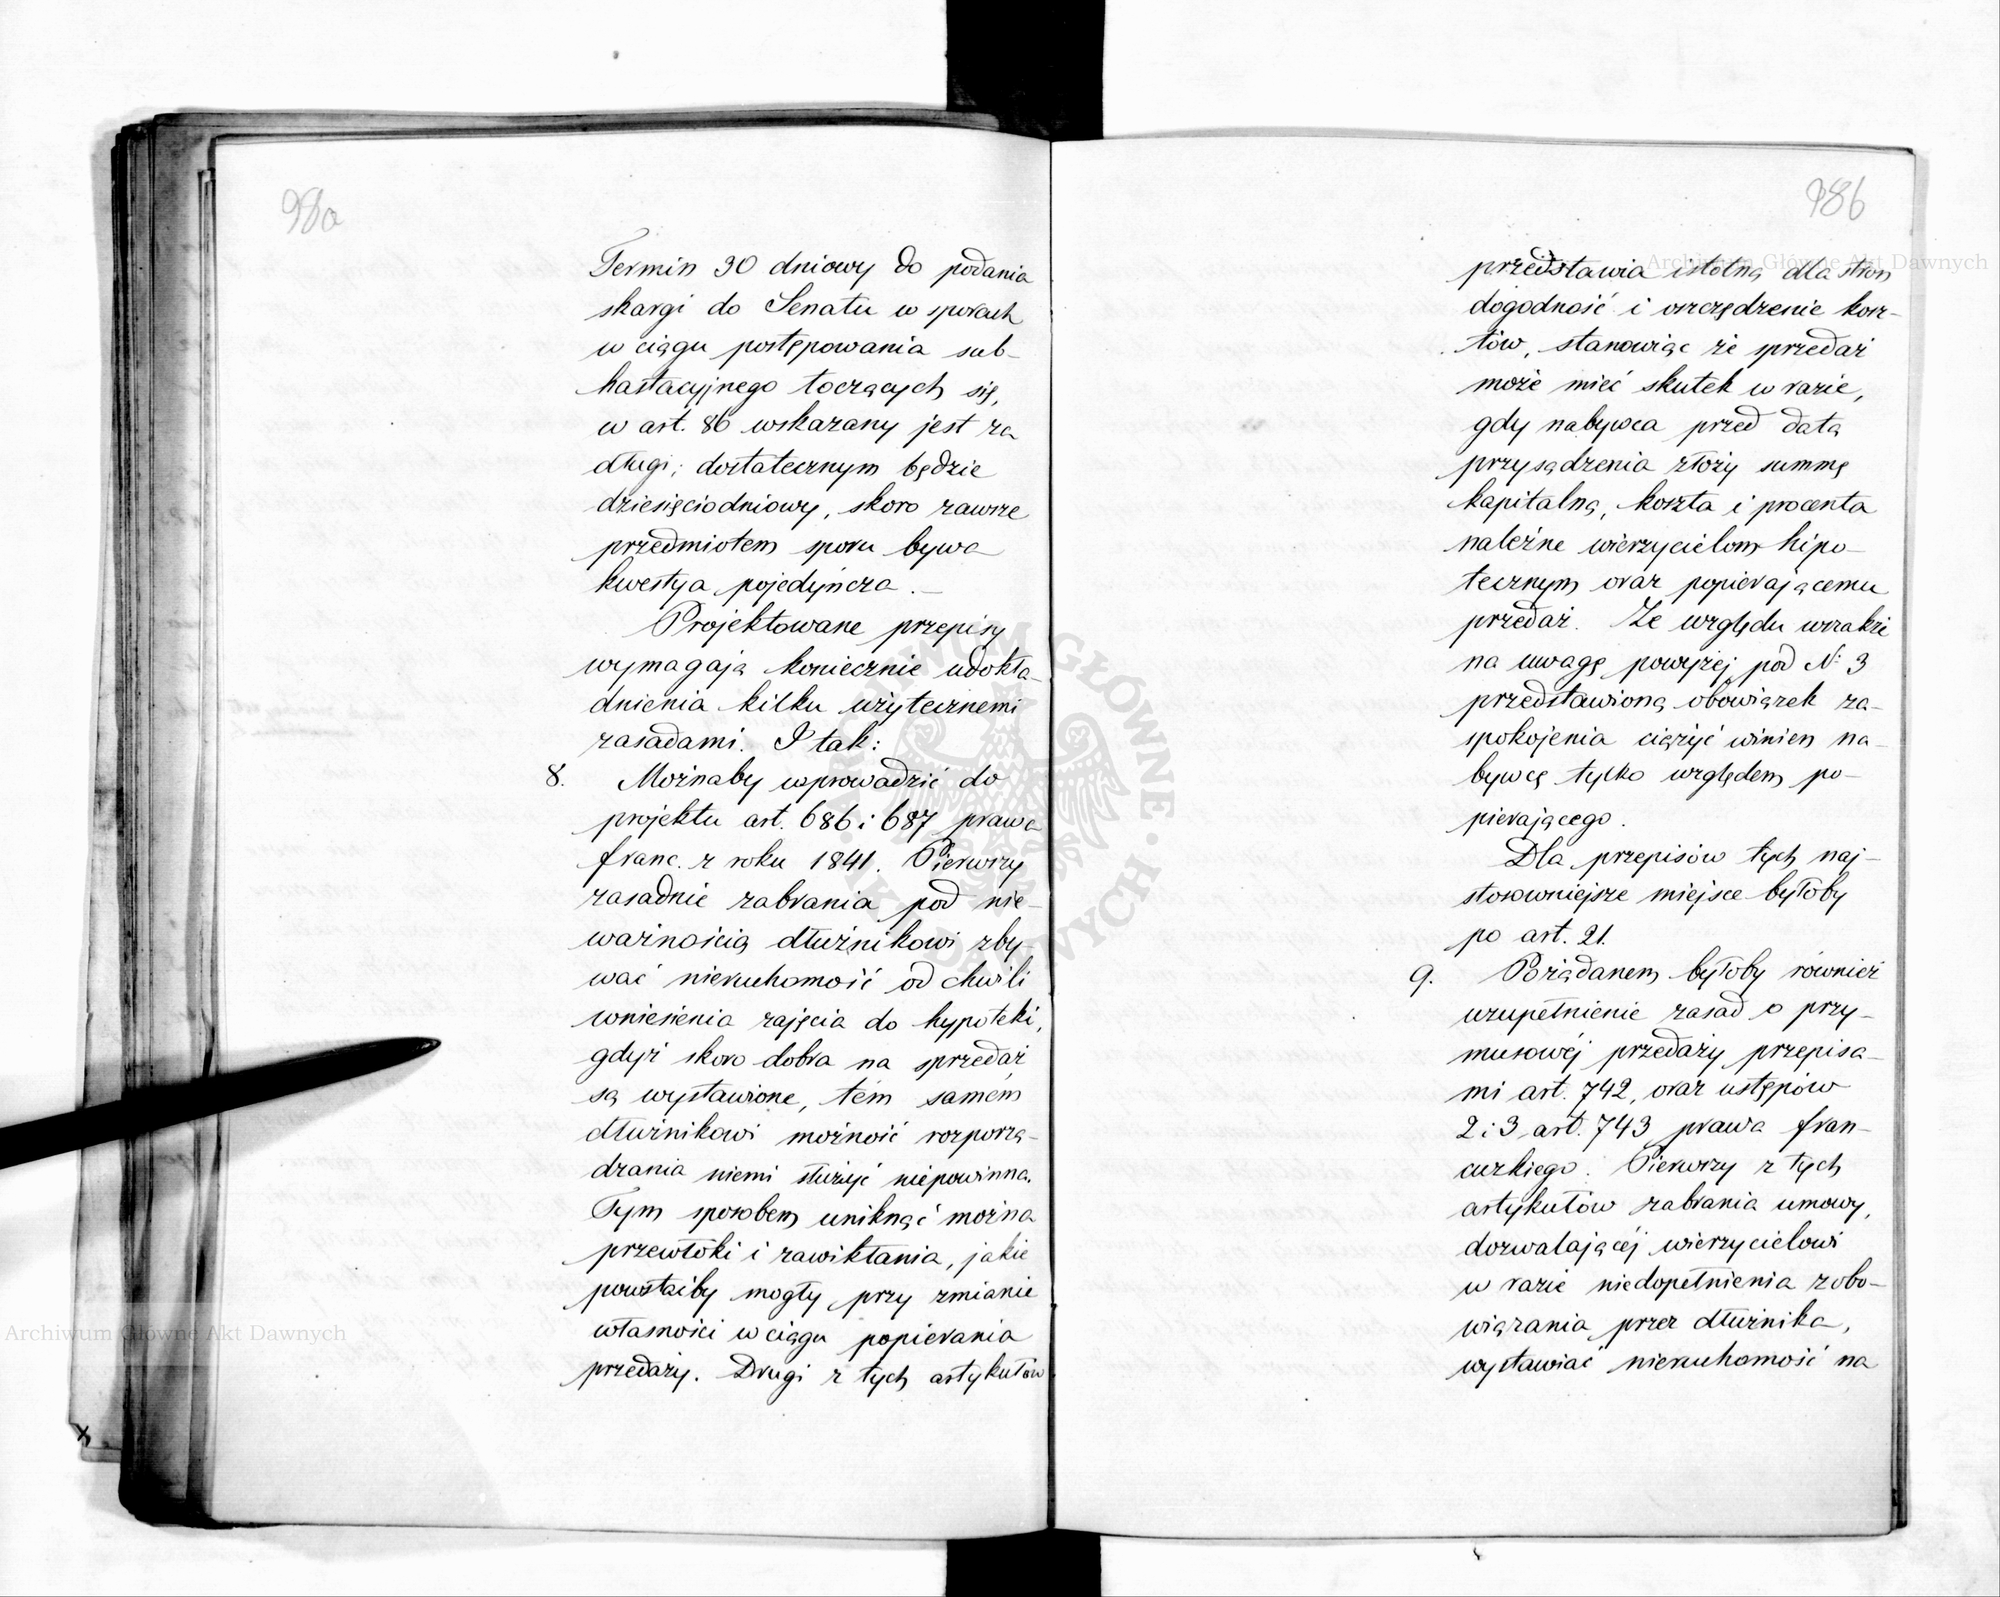 98a
Termin 30 dniowy do podania
skargi do Senatu w sporach
w ciągu postępowania sub-
hastacyjnego toczących się,
w art. 86 wskazany jest za
długi; dostatecznym będzie
dziesięciodniowy, skoro zawsze
przedmiotem sporu bywa
kwestya pojedyńcza. —
Projektowane przepisy
wymagają koniecznie udokła-
dnienia kilku użytecznemi
zasadami. I tak:
8. Możnaby wprowadzić do
projektu art. 686 i 687 prawa
franc. z roku 1841. Pierwszy
zasadnie zabrania pod nie-
ważnością dłużnikowi zby-
wać nieruchomość od chwili
wniesienia zajęcia do hypoteki,
gdyż skoro dobra na sprzedaż
są wystawione, tém samém
dłużnikowi możność rozporzą-
dzania niemi służyć niepowinna.
Tym sposobem uniknąć można
przewłóki i zawikłania, jakie
powstaćby mogły przy zmianie
własności w ciągu popierania
przedaży. Drugi z tych artykułów
98b
przedstawia istotną dla stron
dogodność i oszczędzenie kosz-
tów, stanowiąc że sprzedaż
może mieć skutek w razie,
gdy nabywca przed datą
przysądzenia złoży summę
kapitalną, koszta i procenta
należne wierzycielom hipo-
tecznym oraz popierającemu
przedaż. Ze względu wszakże
na uwagę powyżej pod N: 3
przedstawioną obowiązek za-
spokojenia ciążyć winien na-
bywcę tylko względem po-
pierającego.
Dla przepisów tych naj-
stosowniejsze miejsce byłoby
po art. 21.
9. Pożądanem byłoby również
uzupełnienie zasad o przy-
musowéj przedaży przepisa-
mi art. 742, oraz ustępów
2 i 3 art. 743 prawa fran-
cuzkiego. Pierwszy z tych
artykułów zabrania umowy,
dozwalającéj wierzycielowi
w razie niedopełnienia zobo-
wiązania przez dłużnika,
wystawiać nieruchomość na
Archiwum Główne Akt Dawnych
Archiwum Główne Akt Dawnych
ARCHIWUM GŁÓWNE AKT DAWNYCH